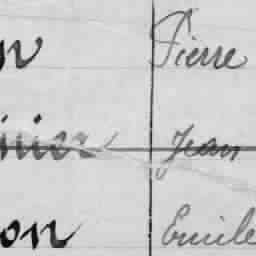 n Pierre
nier Jean
on Emile